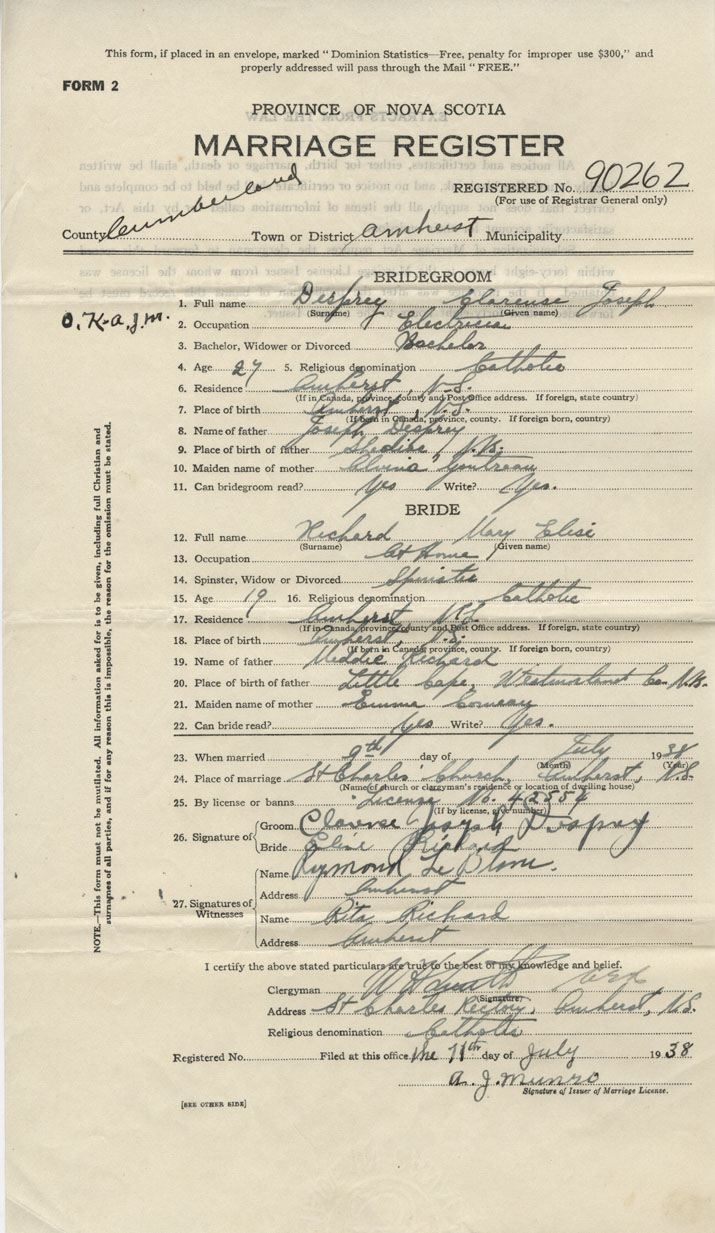 This form, if placed in an envelope, marked " Dominion Statistics—Free, penalty for improper use $300," and
properly addressed will pass through the Mail " FREE."
FORM 2
PROVINCE OF NOVA SCOTIA
MARRIAGE REGISTER
REGISTERED No. 90262
(For use of Registrar General only)
County Cumberland Town or District Amherst Municipality
BRIDEGROOM
O.K-a.J.m.
1. Full name Desprey Clarense Joseph
(Surname) (Given name)
2. Occupation Electrician
3. Bachelor, Widower or Divorced Bachelor
4. Age 27 5. Religious denomination Catholic
6. Residence Amherst, N.S.
(If in Canada, province, county and Post Office address. If foreign, state country)
7. Place of birth Amherst, N.S.
(If born in Canada, province, county. If foreign born, country)
8. Name of father Joseph Desprey
9. Place of birth of father Shediac, N.B.
10. Maiden name of mother Alvina Goutreau
11. Can bridegroom read? Yes Write? Yes.
BRIDE
12. Full name Richard Mary Elise
(Surname) (Given name)
13. Occupation At Home
14. Spinster, Widow or Divorced Spinster
15. Age 19 16. Religious denomination Catholic
17. Residence Amherst, N.S.
(If in Canada, province, county and Post Office address. If foreign, state country)
18. Place of birth Amherst, N.S.
(If born in Canada, province, county. If foreign born, country)
19. Name of father Richard
20. Place of birth of father Little Cape, Westmorland Co. N.B.
21. Maiden name of mother Emma Comeau
22. Can bride read? Yes Write? Yes.
23. When married 9th day of July 1938
(Month) (Year)
24. Place of marriage St Charles' Church, Amherst, N.S.
(Name of church or clergyman's residence or location of dwelling house)
25. By license or banns License No. 42554
(If by license, give number)
26. Signature of Groom Clarense Joseph Desprey
Bride Elise Richard
27. Signatures of Witnesses Name Rymond Le Blanc.
Address Amherst
Name Rita Richard
Address Amherst
I certify the above stated particulars are true to the best of my knowledge and belief.
Clergyman
(Signature)
Address St Charles Rectory, Amherst, N.S.
Religious denomination Catholic
Registered No. Filed at this office the 11th day of July 1938
A. J. Munro
Signature of Issuer of Marriage License.
[SEE OTHER SIDE]
NOTE.—This form must not be mutilated. All information asked for is to be given, including full Christian and
surnames of all parties, and if for any reason this is impossible, the reason for the omission must be stated.